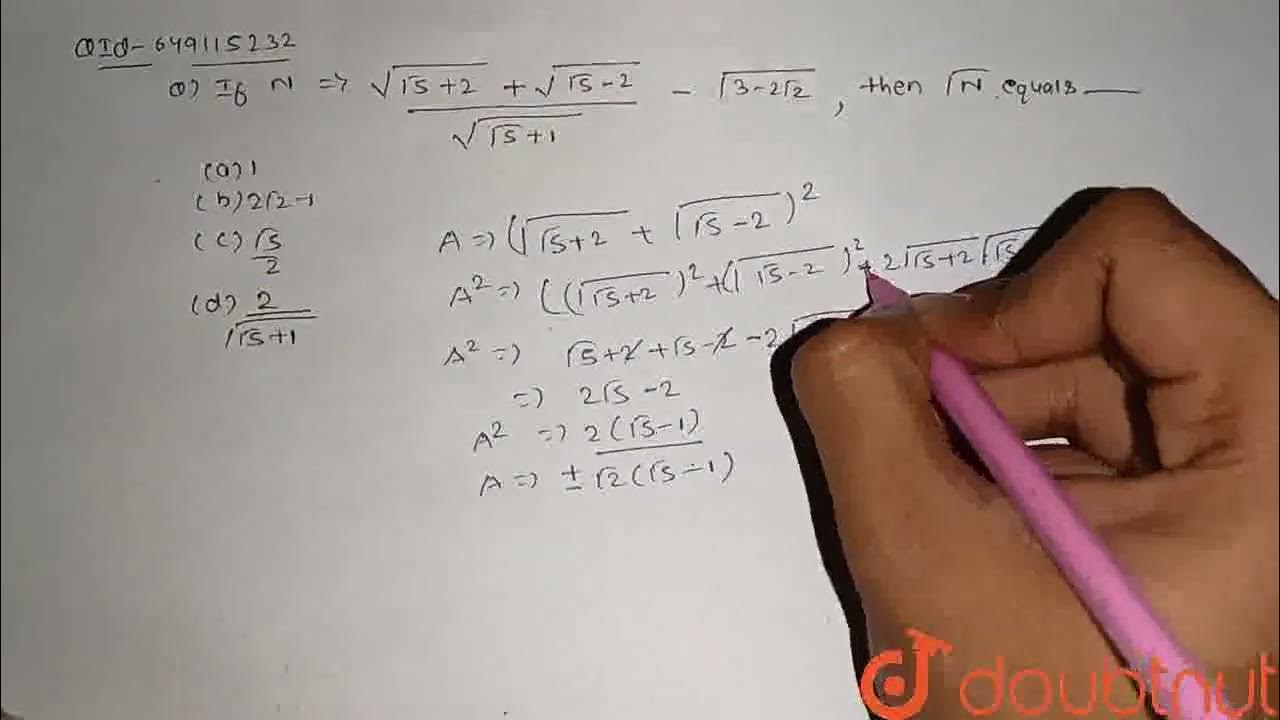 QId-649115232
Q) If N => √(√5+2) + √(√5-2) / √(√5+1) - √(3-2√2), then √N equals __
(a) 1
(b) 2√2-1
(c) √5/2
(d) 2/√(√5+1)
A => (√(√5+2) + √(√5-2))²
A² => ((√(√5+2))² + (√(√5-2))² + 2√(√5+2) √(√5
A² => √5+2+√5-2-2√
=> 2√5-2
A² => 2(√5-1)
A => ±√2(√5-1)
doubtnut